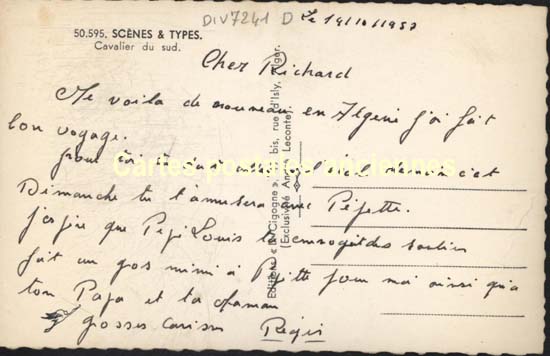 DIV7241 D Le 14/10/1957
50.595. SCÈNES & TYPES.
Cavalier du sud.
Cher Richard
Me voila de nouveau en Algérie j'ai fait
bon voyage.
pour toi
Cartes postales anciennes
Dimanche tu t'amusera avec Pépette.
j'espère que Pépé Louis
fait un gros mimi à Pépette pour moi ainsi qu'a
ton Papa et ta Maman
grosses caresses Régis
Editions « La Cigogne », bis, rue d'Isly, Alger.
(Exclusivité André Leconte)